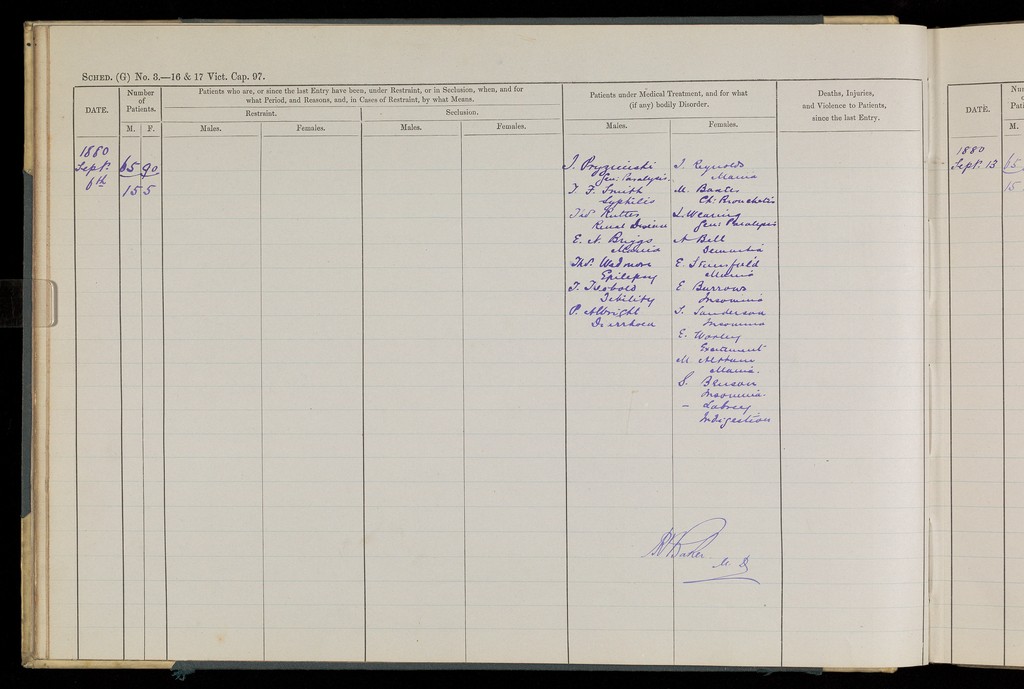 SCHED. (G) No. 3.—16 & 17 Vict. Cap. 97.
DATE.
Number of Patients.
M. F.
Patients who are, or since the last Entry have been, under Restraint, or in Seclusion, when, and for
what Period, and Reasons, and, in Cases of Restraint, by what Means.
Restraint.
Seclusion.
Males.
Females.
Males.
Females.
Patients under Medical Treatment, and for what
(if any) bodily Disorder.
Males.
Females.
Deaths, Injuries,
and Violence to Patients,
since the last Entry.
1880
Sept.
6th
65 90
155
J.
Gen: Paralysis.
T. F. Smith
Syphilis
Rutter
Renal Disease
E. N. Briggs
Mania
Thos. Wadmore
Epilepsy
T. Theobold
Debility
P. Albright
Diarrhoea
J. Reynolds
Mania
M. Baxter
Ch: Bronchitis
L. Wearing
Gen: Paralysis
A Bell
Dementia
E. Stansfield
Mania
E Burrows
Insomnia
S. Sanderson
Insomnia
E. Worley
Excitement
M.
Mania.
S. Benson
Insomnia.
–
Indigestion
Baker M. D
DATE.
M.
1880
Sept. 13
65
15